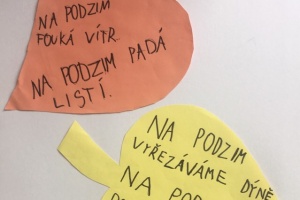 NA PODZIM
FOUKÁ VÍTR.
NA PODZIM PADÁ
LISTÍ.
NA PODZIM
VYŘEZÁVÁME DÝNĚ
NA